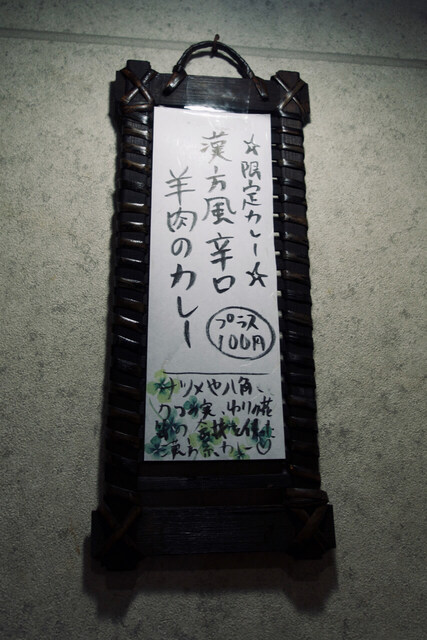 ☆限定カレー☆
漢方風辛口
羊肉のカレー
プラス
100円
ナツメや八角、
クコの実、ゆりの花